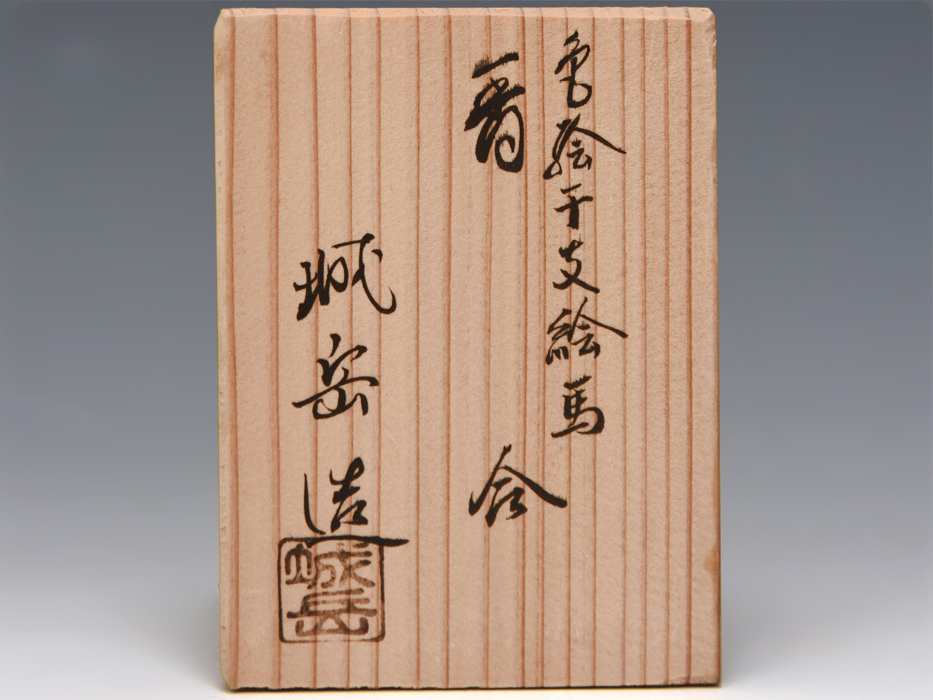 色絵干支絵馬
香合
城岳造
城岳